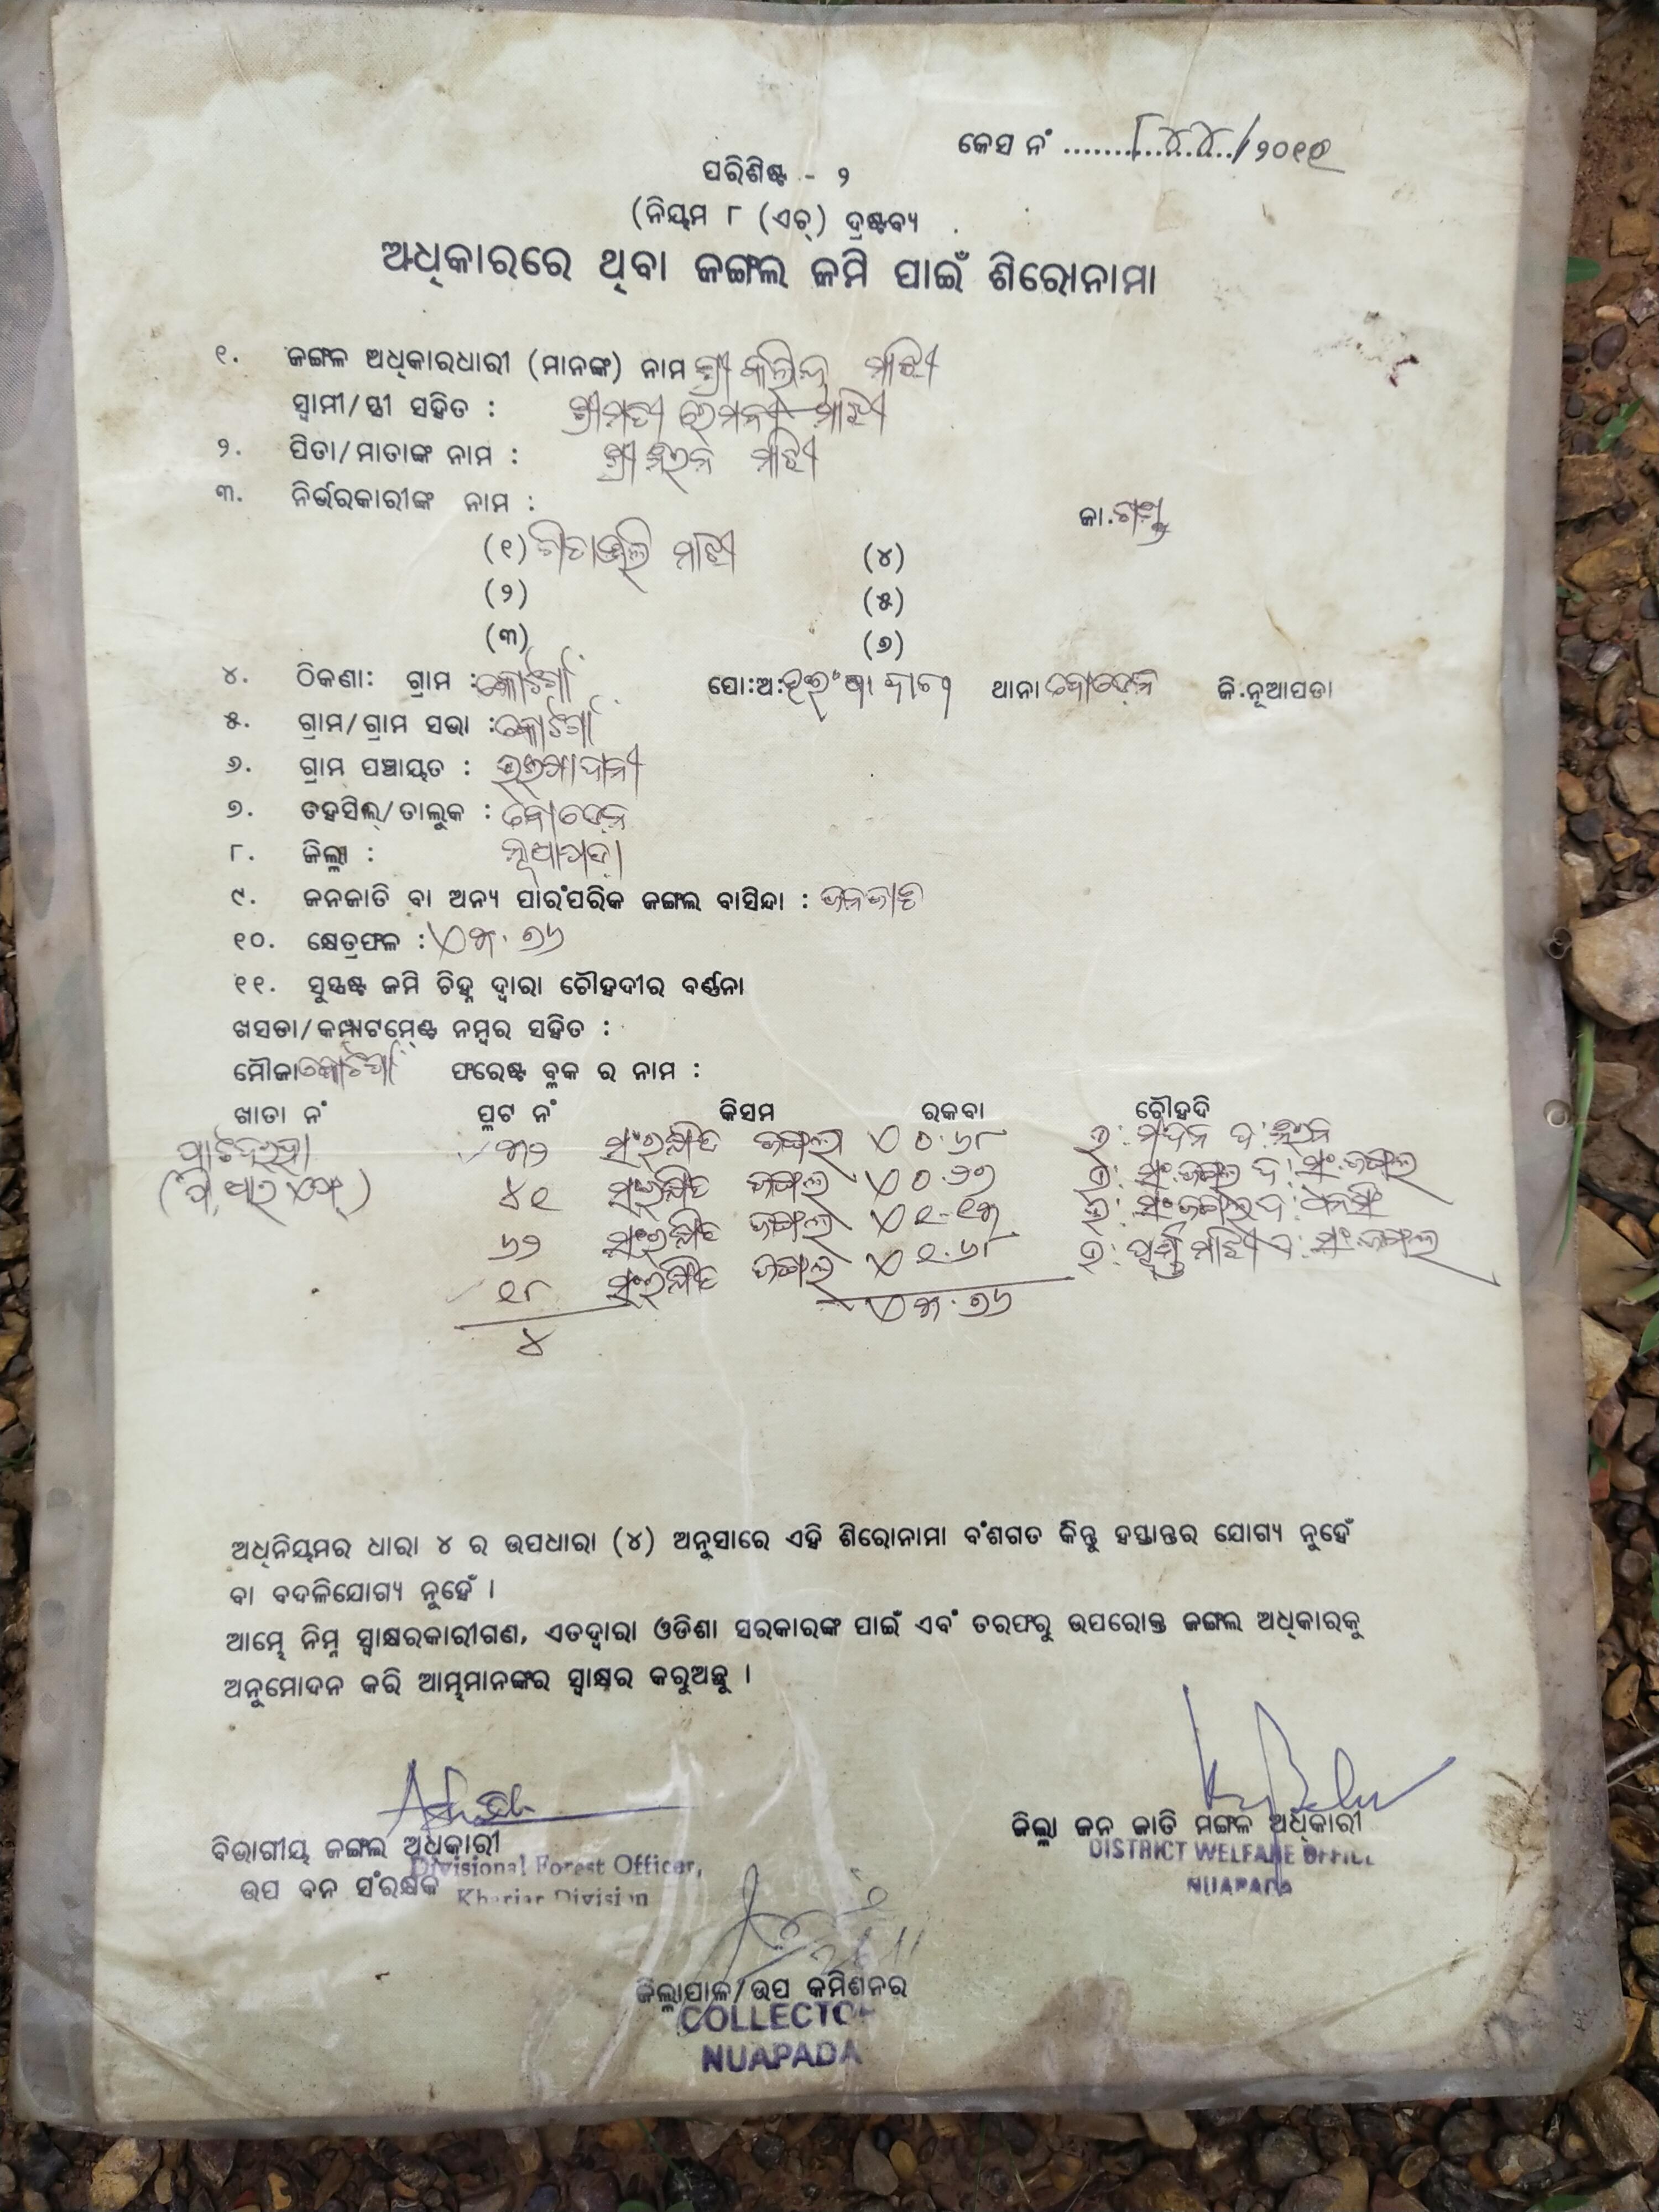 କେସ ନଂ ................/୨୦୧୧
ପରିଶିଷ୍ଟ - ୨
(ନିୟମ ୮ (ଏଚ୍) ଦ୍ରଷ୍ଟବ୍ୟ
ଅଧିକାରରେ ଥିବା ଜଙ୍ଗଲ ଜମି ପାଇଁ ଶିରୋନାମା
୧. ଜଙ୍ଗଳ ଅଧିକାରଧାରୀ (ମାନଙ୍କ) ନାମ ଶ୍ରୀ କଲିନ୍ଦ୍ର ମାଝୀ
ସ୍ବାମୀ/ସ୍ତ୍ରୀ ସହିତ : ଶ୍ରୀମତୀ ହେମଳୀ ମାଝୀ
୨. ପିତା/ମାତାଙ୍କ ନାମ : ଶ୍ରୀ ମାଝୀ
୩. ନିର୍ଭରକାରୀଙ୍କ ନାମ :
ଜା.ଗଣ୍ଡ
(୧) ଗିତାଞ୍ଜଲି ମାଝୀ (୪)
(୨) (୫)
(୩) (୬)
୪. ଠିକଣା: ଗ୍ରାମ : କୋଟଗାଁ ପୋ:ଅ: ଥାନା ବୋଡେନ ଜି.ନୂଆପଡା
୫. ଗ୍ରାମ/ଗ୍ରାମ ସଭା : କୋଟଗାଁ
୬. ଗ୍ରାମ ପଞ୍ଚାୟତ :
୭. ତହସିଲ୍/ତାଲୁକ : ବୋଡେନ
୮. ଜିଲ୍ଲା : ନୂଆପଡା
୯. ଜନଜାତି ବା ଅନ୍ୟ ପାରଂପରିକ ଜଙ୍ଗଲ ବାସିନ୍ଦା : ଜନଜାତି
୧୦. କ୍ଷେତ୍ରଫଳ : ଏ ୩.୭୬
୧୧. ସୁସ୍ପଷ୍ଟ ଜମି ଚିହ୍ନ ଦ୍ୱାରା ଚୌହଦୀର ବର୍ଣ୍ଣନା
ଖସଡା/କମ୍ପାଟମେଣ୍ଟ ନମ୍ବର ସହିତ :
ମୌଜା କୋଟଗାଁ ଫରେଷ୍ଟ ବ୍ଲକ ର ନାମ :
ଖାତା ନଂ ପ୍ଲଟ ନଂ କିସମ ରକବା ଚୌହଦି
୩୨ ସଂରକ୍ଷିତ ଜଙ୍ଗଲ ଏ ୦.୬୮
୪୧ ସଂରକ୍ଷିତ ଜଙ୍ଗଲ ଏ ୦.୨୭ ସଂ.ଜଙ୍ଗଲ ଦ: ସଂ.ଜଙ୍ଗଲ
୬୨ ସଂରକ୍ଷିତ ଜଙ୍ଗଲ ଏ ୧.୧୩ ସଂ.ଜଙ୍ଗଲ ଦ: ଧନସିଂ
୧୮ ସଂରକ୍ଷିତ ଜଙ୍ଗଲ ଏ ୧.୬୮ ମାଝୀ ଦ: ସଂ.ଜଙ୍ଗଲ
୪ ଏ ୩.୭୬
ଅଧିନିୟମର ଧାରା ୪ ର ଉପଧାରା (୪) ଅନୁସାରେ ଏହି ଶିରୋନାମା ବଂଶଗତ କିନ୍ତୁ ହସ୍ତାନ୍ତର ଯୋଗ୍ୟ ନୁହେଁ
ବା ବଦଳିଯୋଗ୍ୟ ନୁହେଁ ।
ଆମ୍ଭେ ନିମ୍ନ ସ୍ୱାକ୍ଷରକାରୀଗଣ, ଏତଦ୍ୱାରା ଓଡିଶା ସରକାରଙ୍କ ପାଇଁ ଏବଂ ତରଫରୁ ଉପରୋକ୍ତ ଜଙ୍ଗଲ ଅଧିକାରକୁ
ଅନୁମୋଦନ କରି ଆମ୍ଭମାନଙ୍କର ସ୍ୱାକ୍ଷର କରୁଅଛୁ ।
ବିଭାଗୀୟ ଜଙ୍ଗଲ ଅଧିକାରୀ
ଉପ ବନ ସଂରକ୍ଷକ
Divisional Forest Officer,
Khariar Division
ଜିଲ୍ଲା ଜନ ଜାତି ମଙ୍ଗଳ ଅଧିକାରୀ
DISTRICT WELFARE OFFICE
NUAPADA
ଜିଲ୍ଲାପାଳ/ଉପ କମିଶନର
COLLECTOR
NUAPADA